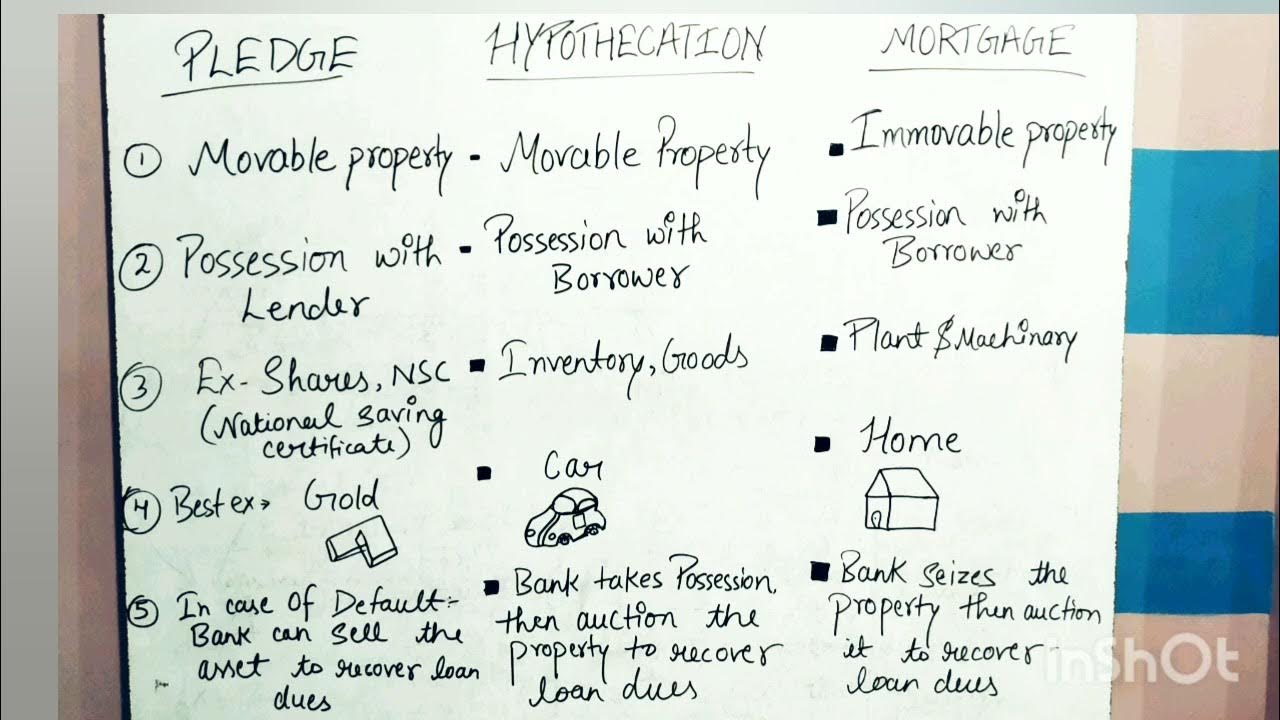 PLEDGE
① Movable property
② Possession with
Lender
③ Ex- Shares, NSC
(National saving
certificate)
④ Best ex→ Gold
⑤ In case Of Default:-
Bank can sell the
asset to recover loan
dues
HYPOTHECATION
- Movable Property
- Possession with
Borrower
▪ Inventory, Goods
▪ Car
▪ Bank takes Possession,
then auction the
property to recover
loan dues
MORTGAGE
▪ Immovable property
▪ Possession with
Borrower
▪ Plant & Machinary
▪ Home
▪ Bank seizes the
property then auction
it to recover-
loan dues
InShOt